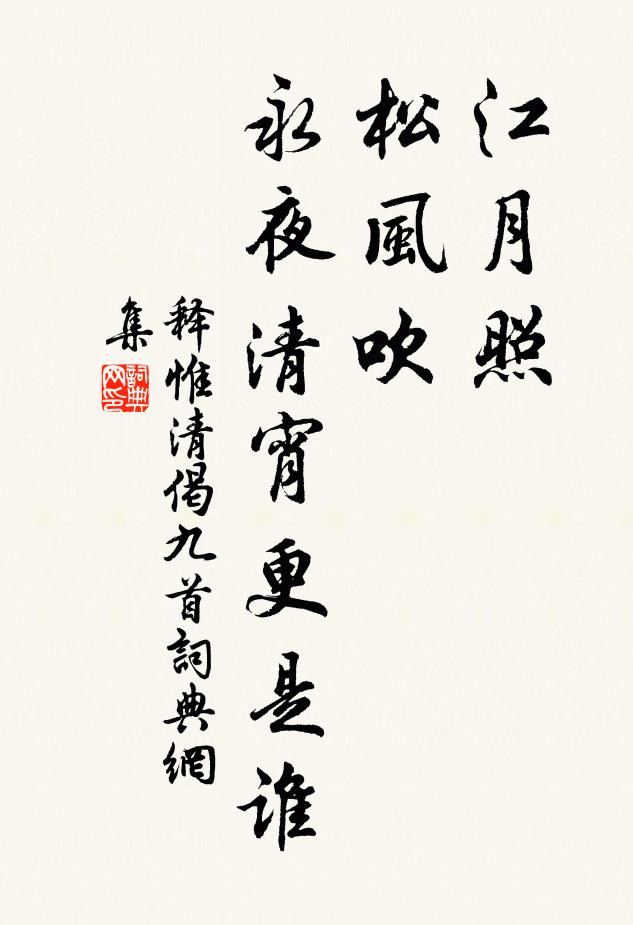 江月照
松風吹
永夜清宵更是誰
释惟清偈九首詞典網
集
詞典网印